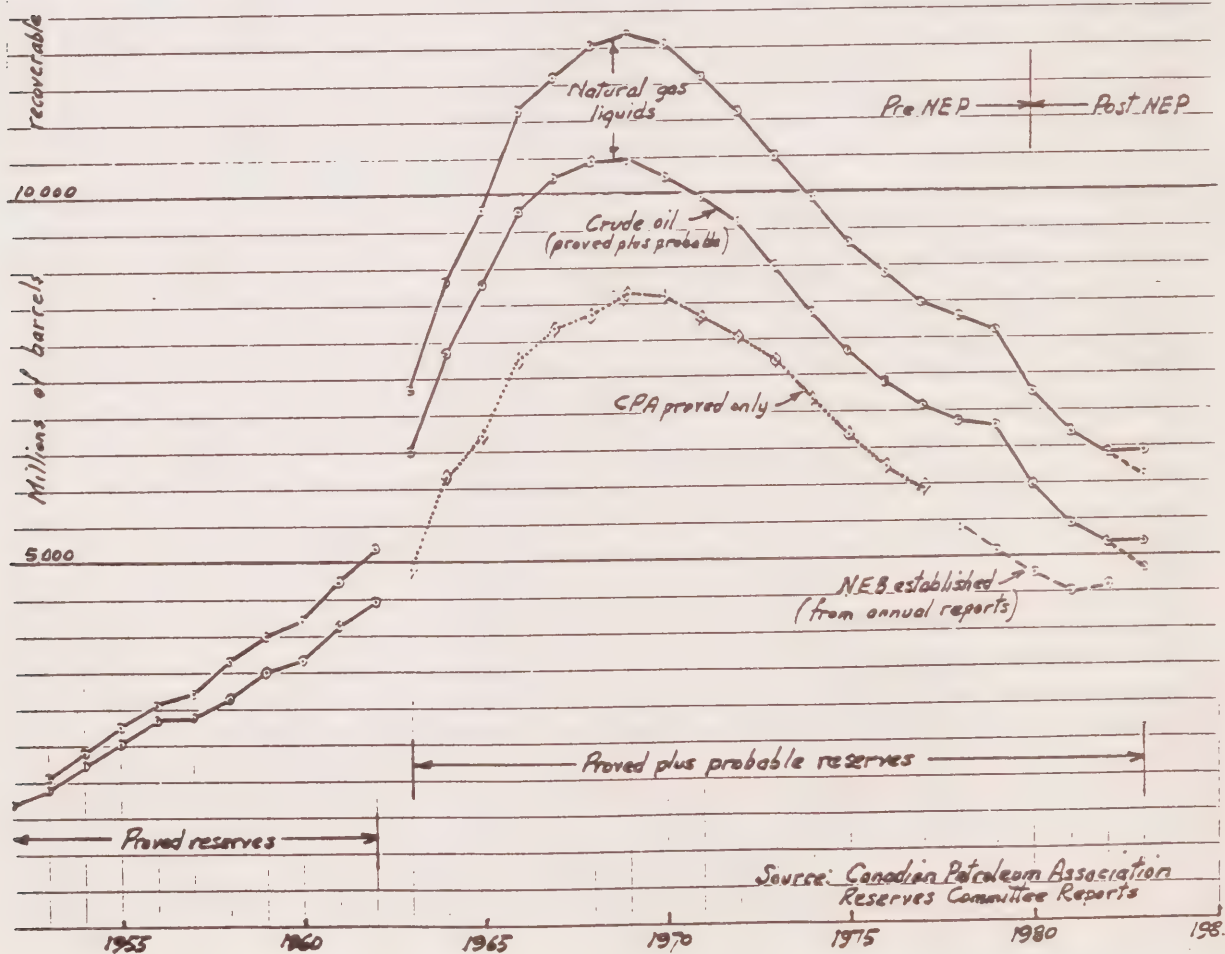 recoverable
Millions of barrels
10,000
5,000
Natural gas
liquids
Pre NEP
Post NEP
Crude oil
(proved plus probable)
CPA proved only
NEB established
(from annual reports)
Proved plus probable reserves
Proved reserves
Source: Canadian Petroleum Association
Reserves Committee Reports
1955
1960
1965
1970
1975
1980
198